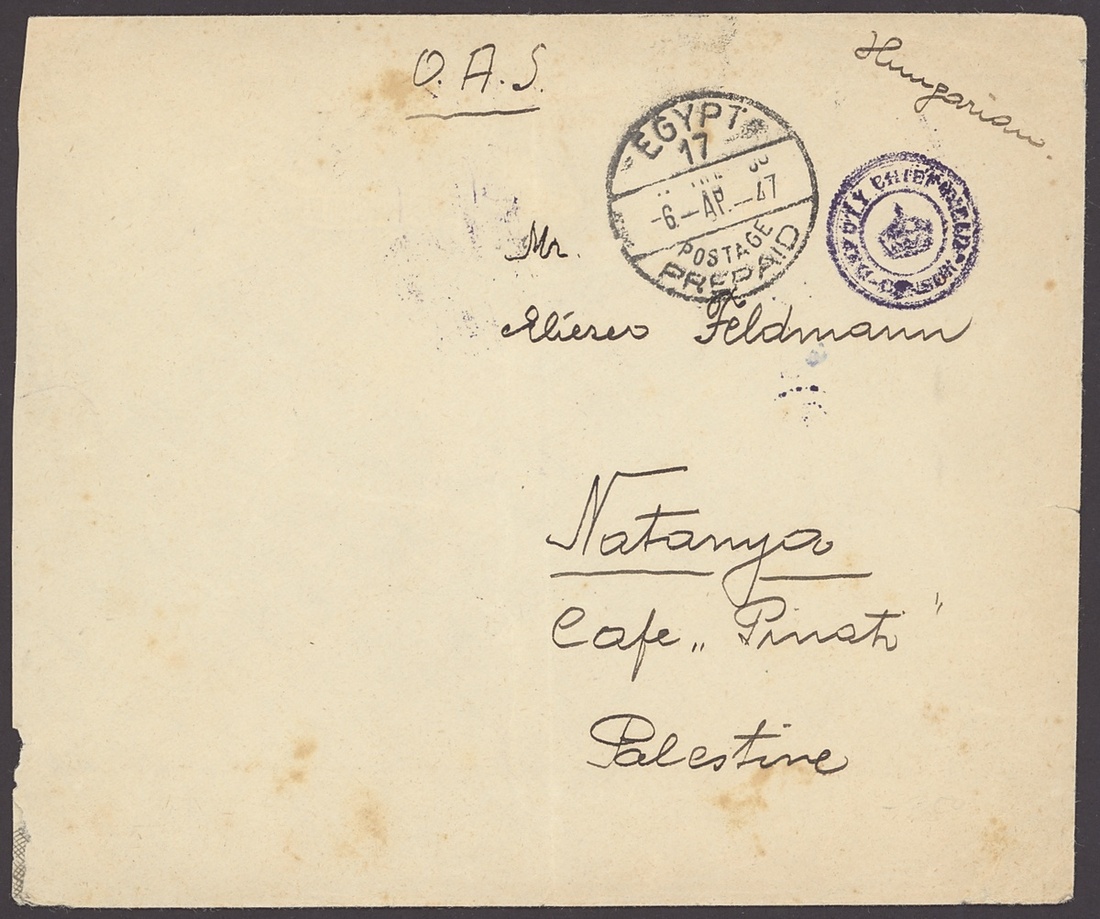 O. A. S.
Hungarian.
EGYPT
17
-6.-AP.-47
POSTAGE
PREPAID
DY CHIEF FIELD
CENSOR
Mr.
Eliezer Feldmann
Natanya
Cafe „Pinati"
Palestine